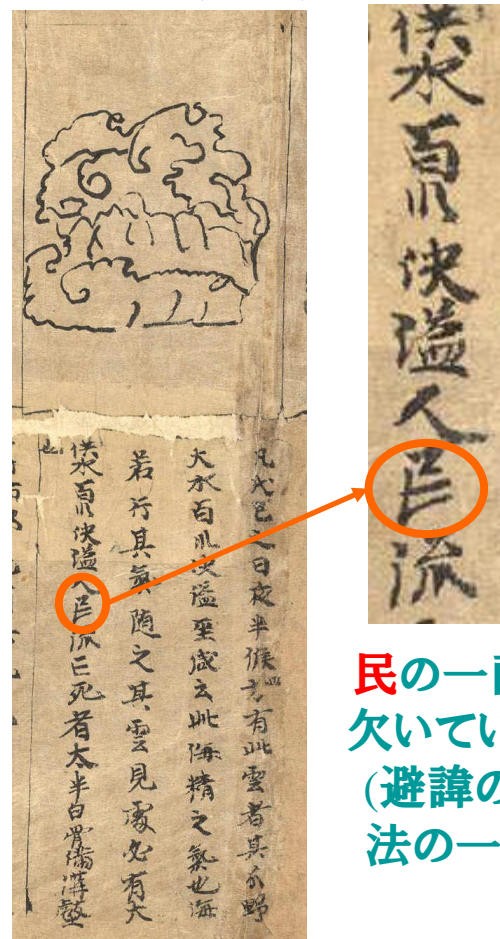 凡戊己之日夜半候四方有此雲者其分野
大水百川決溢巫咸云此海精之氣也海
若行其氣隨之其雲見處必有大
供水百川決溢人民流亡死者太半白骨滿溝壑
也
供水百川決溢人民流
民の一
欠いてい
(避諱の
法の一